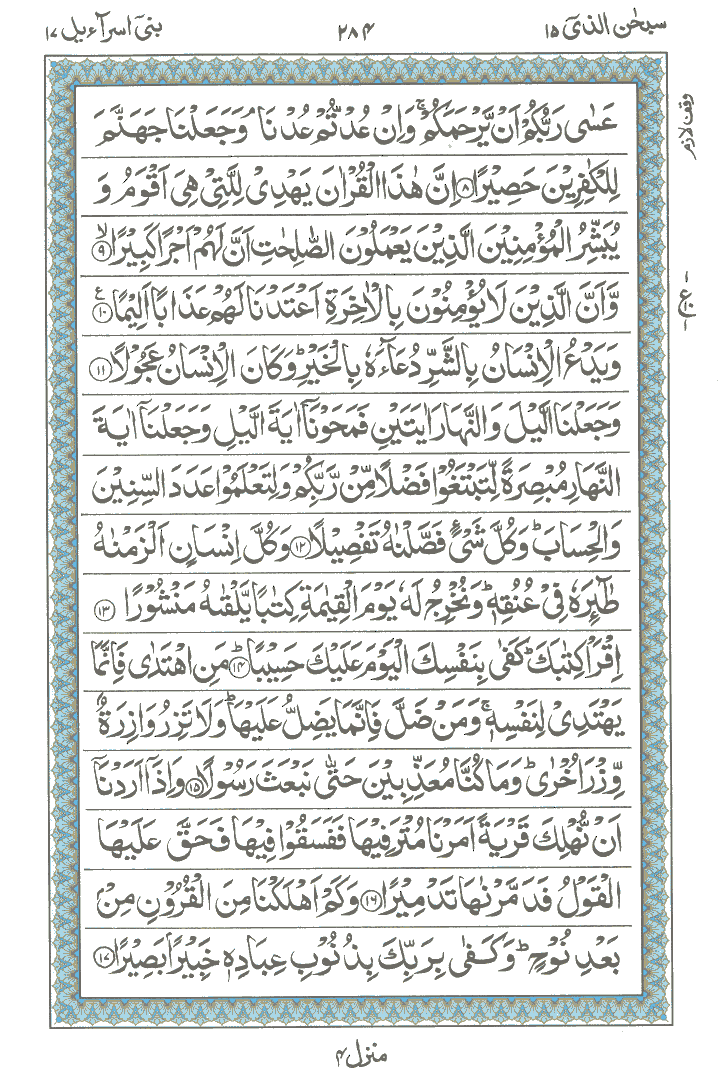 سبحٰن الذیٓ ۱۵
۲۸۴
بنیٓ اسرآءیل ۱۷
وقف لازم
عَسٰی رَبُّكُمْ اَنْ یَّرْحَمَكُمْ ۚ وَاِنْ عُدْتُّمْ عُدْنَا ۘ وَجَعَلْنَا جَهَنَّمَ
لِلْكٰفِرِیْنَ حَصِیْرًا ۸ اِنَّ هٰذَا الْقُرْاٰنَ یَهْدِیْ لِلَّتِیْ هِیَ اَقْوَمُ وَ
یُبَشِّرُ الْمُؤْمِنِیْنَ الَّذِیْنَ یَعْمَلُوْنَ الصّٰلِحٰتِ اَنَّ لَهُمْ اَجْرًا كَبِیْرًا ۙ ۹
وَّاَنَّ الَّذِیْنَ لَا یُؤْمِنُوْنَ بِالْاٰخِرَةِ اَعْتَدْنَا لَهُمْ عَذَابًا اَلِیْمًا ۱۰ ع
ع
وَیَدْعُ الْاِنْسَانُ بِالشَّرِّ دُعَآءَهٗ بِالْخَیْرِ ؕ وَكَانَ الْاِنْسَانُ عَجُوْلًا ۱۱
وَجَعَلْنَا الَّیْلَ وَالنَّهَارَ اٰیَتَیْنِ فَمَحَوْنَاۤ اٰیَةَ الَّیْلِ وَجَعَلْنَاۤ اٰیَةَ
النَّهَارِ مُبْصِرَةً لِّتَبْتَغُوْا فَضْلًا مِّنْ رَّبِّكُمْ وَلِتَعْلَمُوْا عَدَدَ السِّنِیْنَ
وَالْحِسَابَ ؕ وَكُلَّ شَیْءٍ فَصَّلْنٰهُ تَفْصِیْلًا ۱۲ وَكُلَّ اِنْسَانٍ اَلْزَمْنٰهُ
طٰٓئِرَهٗ فِیْ عُنُقِهٖ ؕ وَنُخْرِجُ لَهٗ یَوْمَ الْقِیٰمَةِ كِتٰبًا یَّلْقٰىهُ مَنْشُوْرًا ۱۳
اِقْرَاْ كِتٰبَكَ ؕ كَفٰی بِنَفْسِكَ الْیَوْمَ عَلَیْكَ حَسِیْبًا ؕ ۱۴ مَنِ اهْتَدٰی فَاِنَّمَا
یَهْتَدِیْ لِنَفْسِهٖ ۚ وَمَنْ ضَلَّ فَاِنَّمَا یَضِلُّ عَلَیْهَا ؕ وَلَا تَزِرُ وَازِرَةٌ
وِّزْرَ اُخْرٰی ؕ وَمَا كُنَّا مُعَذِّبِیْنَ حَتّٰی نَبْعَثَ رَسُوْلًا ۱۵ وَاِذَاۤ اَرَدْنَاۤ
اَنْ نُّهْلِكَ قَرْیَةً اَمَرْنَا مُتْرَفِیْهَا فَفَسَقُوْا فِیْهَا فَحَقَّ عَلَیْهَا
الْقَوْلُ فَدَمَّرْنٰهَا تَدْمِیْرًا ۱۶ وَكَمْ اَهْلَكْنَا مِنَ الْقُرُوْنِ مِنْ
بَعْدِ نُوْحٍ ؕ وَكَفٰی بِرَبِّكَ بِذُنُوْبِ عِبَادِهٖ خَبِیْرًا بَصِیْرًا ۱۷
منزل ۴